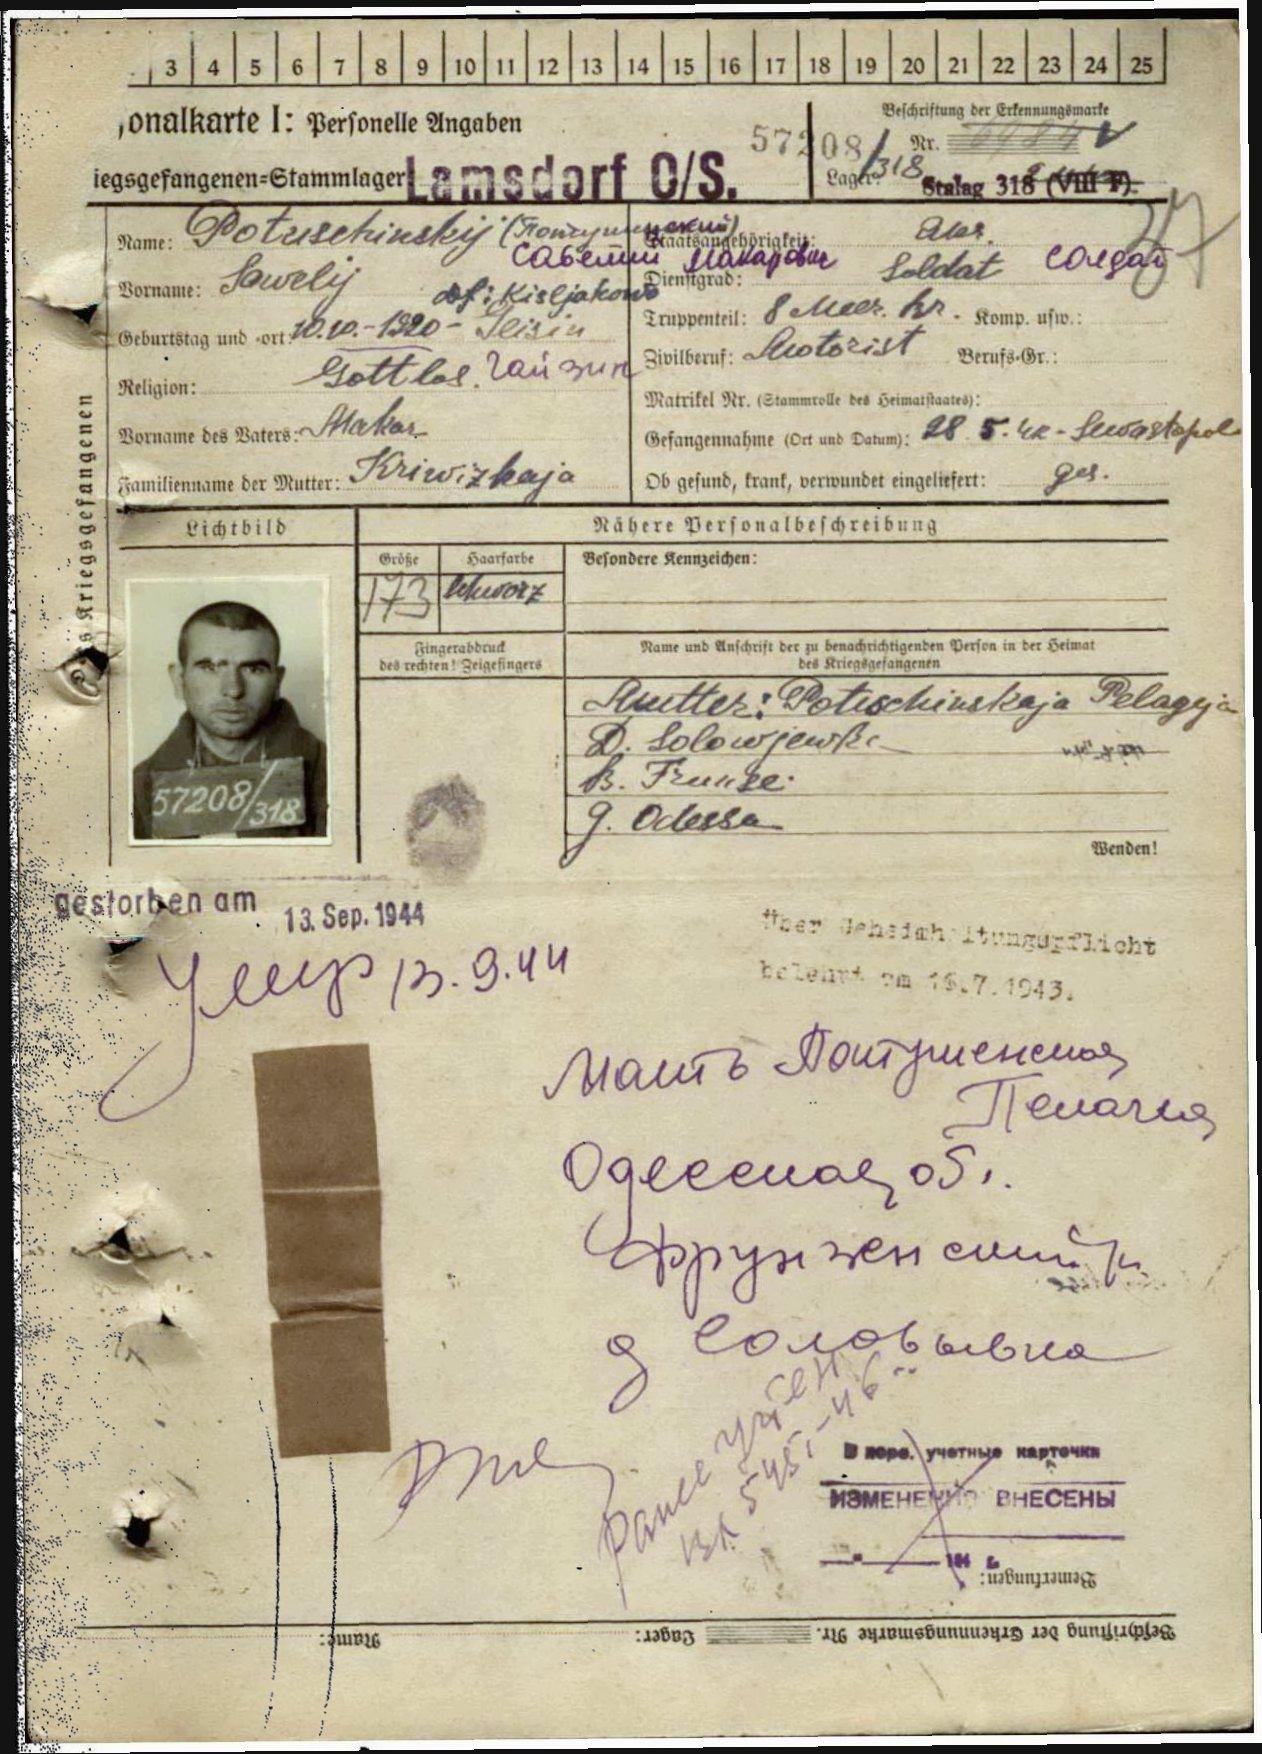 3 4 5 6 7 8 9 10 11 12 13 14 15 16 17 18 19 20 21 22 23 24 25
onalkarte I: Personelle Angaben
Beschriftung der Erkennungsmarke
57208/318
Nr.
iegsgefangenen-Stammlager Lamsdorf O/S.
Lager: Stalag 318 (VIII F).
Name: Potuschinskij
Staatsangehörigkeit:
Савелий Макарович
Vorname: Sawelij
Dienstgrad: Soldat солдат
Kisljakowo
Truppenteil: 8 Komp. usw.:
Geburtstag und -ort: 10.10.-1920-
Zivilberuf: Motorist Berufs-Gr.:
Religion: Gottlos. Гайзин
Matrikel Nr. (Stammrolle des Heimatstaates):
Vorname des Vaters: Makar
Gefangennahme (Ort und Datum): 28. 5. 42 - Sewastopol
Familienname der Mutter: Kriwizkaja
Ob gesund, krank, verwundet eingeliefert: ges.
s Kriegsgefangenen
Lichtbild
Nähere Personalbeschreibung
Größe Haarfarbe
Besondere Kennzeichen:
173 schwarz
57208/318
Fingerabdruck
des rechten! Zeigefingers
Name und Anschrift der zu benachrichtigenden Person in der Heimat
des Kriegsgefangenen
Mutter: Potuschinskaja Pelageja
D. Solowjewka
B. Frunse.
G. Odessa
Wenden!
gestorben am 13. Sep. 1944
Умер 13.9.44
über Geheimhaltungspflicht
belehrt am 16.7.1943.
Мать Потушенская
Пелагия
Одесская об.
Фрунзенский р
д Соловьевка
Ранее учтен
5451-46
В перс. учетные карточки
ИЗМЕНЕНИЯ ВНЕСЕНЫ
194
Bemerkungen:
Beschriftung der Erkennungsmarke Nr. Lager: Name: